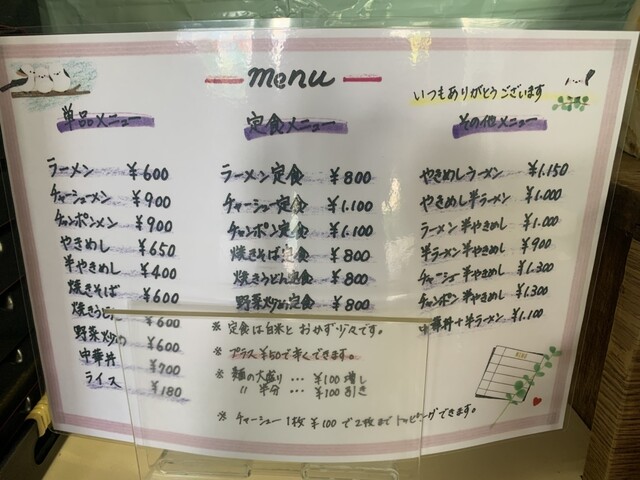 menu
いつもありがとうございます
単品メニュー
ラーメン ¥600
チャーシューメン ¥900
チャンポンメン ¥900
やきめし ¥650
半やきめし ¥400
焼きそば ¥600
焼きうどん ¥600
野菜炒め ¥600
中華丼 ¥700
ライス ¥180
定食メニュー
ラーメン定食 ¥800
チャーシュー定食 ¥1.100
チャンポン定食 ¥1.100
焼きそば定食 ¥800
焼きうどん定食 ¥800
野菜炒め定食 ¥800
その他メニュー
やきめしラーメン ¥1.150
やきめし半ラーメン ¥1.000
ラーメン半やきめし ¥1.000
半ラーメン半やきめし ¥900
チャーシュー半やきめし ¥1.300
チャンポン半やきめし ¥1.300
中華丼+半ラーメン ¥1.100
※ 定食は白米と おかず少々です。
※ プラス¥50で辛くできます。
※ 麺の大盛り … ¥100増し
〃 半分 … ¥100引き
※ チャーシュー1枚¥100で2枚までトッピングできます。